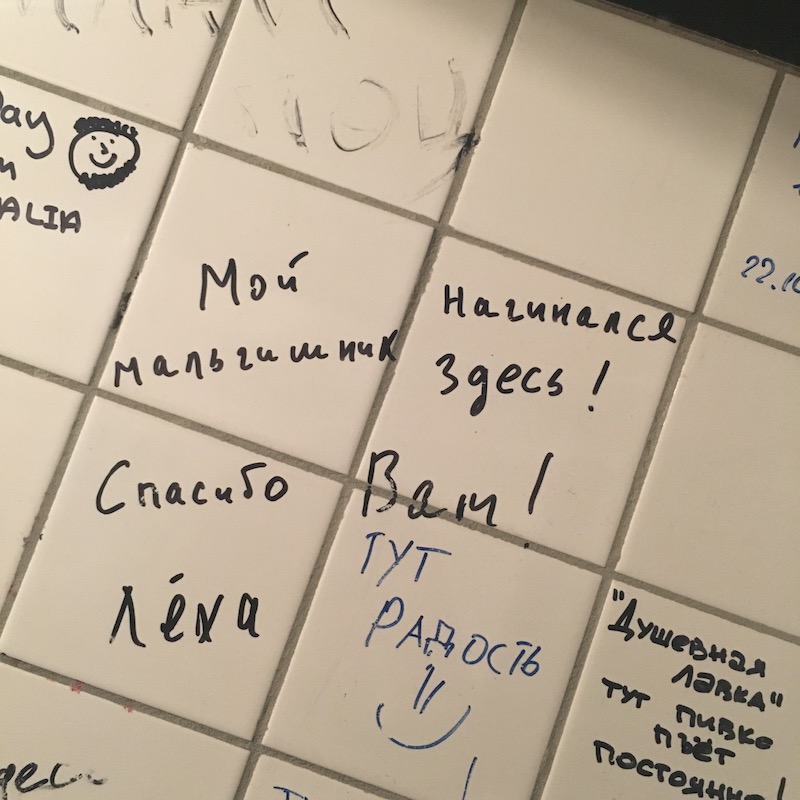 ALIA
22.10
Мой
мальчишник
Начинался
здесь!
Спасибо
Вам!
Лёха
ТУТ
РАДОСТЬ
"Душевная
лавка"
тут пивко
пьёт
постоянно!